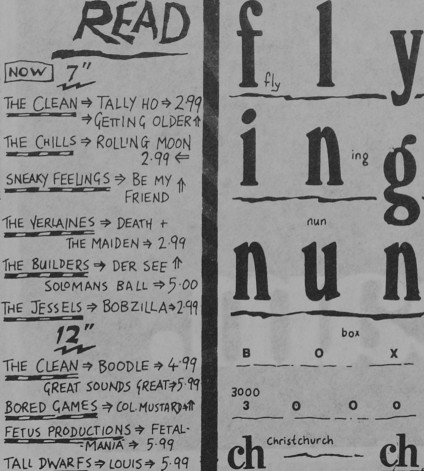 READ
NOW 7"
THE CLEAN ⇒ TALLY HO ⇒ 2.99
⇒ GETTING OLDER ⇑
THE CHILLS ⇒ ROLLING MOON
2.99 ⇐
SNEAKY FEELINGS ⇒ BE MY ⇑
FRIEND
THE VERLAINES ⇒ DEATH +
THE MAIDEN ⇒ 2.99
THE BUILDERS ⇒ DER SEE ⇑
SOLOMANS BALL ⇒ 5.00
THE JESSELS ⇒ BOBZILLA ⇒ 2.99
12"
THE CLEAN ⇒ BOODLE ⇒ 4.99
GREAT SOUNDS GREAT ⇒ 5.99
BORED GAMES ⇒ COL. MUSTARD ⇑
FETUS PRODUCTIONS ⇒ FETAL-
MANIA ⇒ 5.99
TALL DWARFS ⇒ LOUIS ⇒ 5.99
f l y
fly
i n g
ing
nun
n u n
box
B O X
3000
3 0 0 0
ch christchurch ch